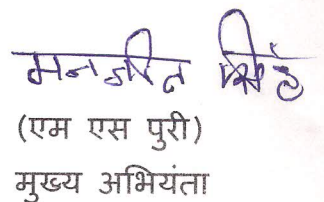 मनजीत सिंह
(एम एस पुरी)
मुख्य अभियंता